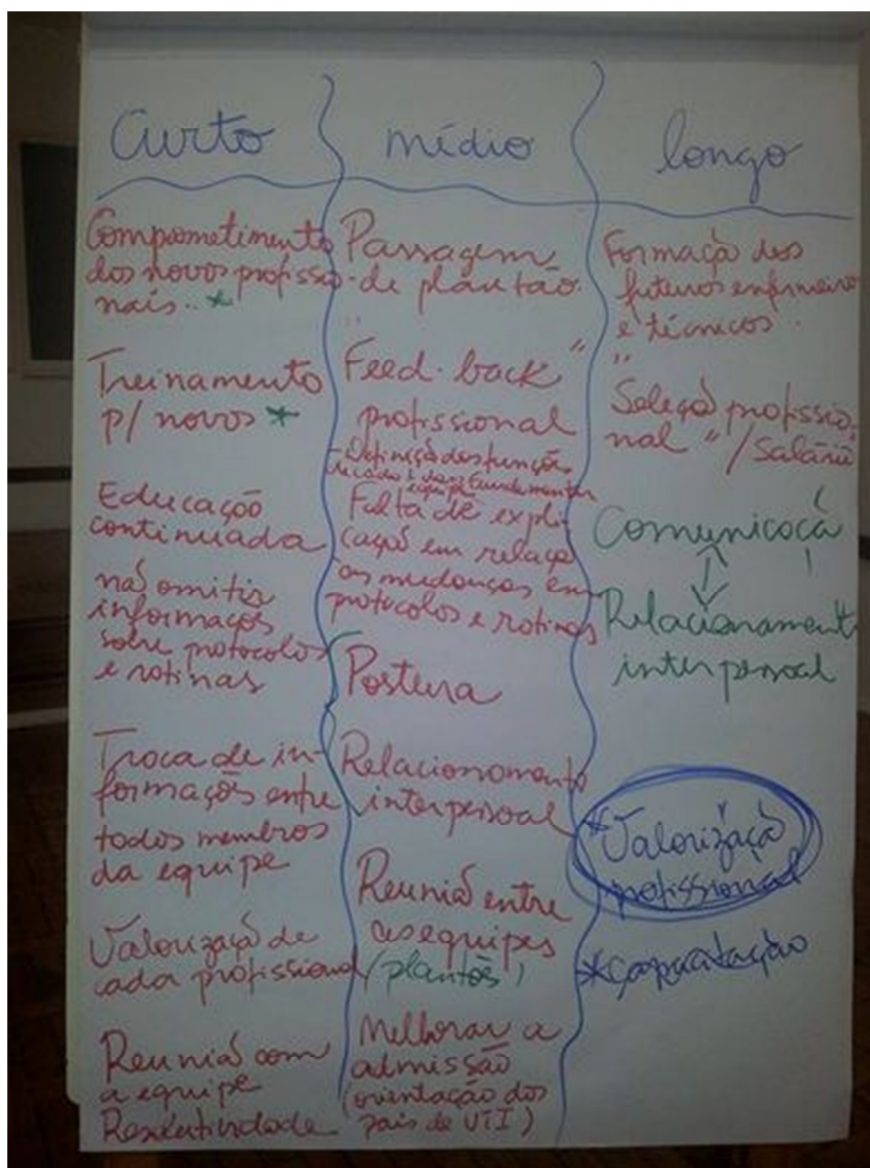 Curto
Comprometimento
dos novos profissio-
nais.. *
Treinamento
p/ novos *
Educação
continuada
não omitir
informações
sobre protocolos
e rotinas
Troca de in-
formações entre
todos membros
da equipe
Valorização de
cada profissional
Reunião com
a equipe
médio
Passagem
de plantão
" Feed-back "
profissional
- Definição das funções
de cada
equipe
Falta de expli-
cação em relação
as mudanças em
protocolos e rotinas
Postura
Relacionamento
interpessoal
Reunião entre
as equipes
(plantões)
Melhorar a
admissão
(orientação dos
pais de UTI)
longo
Formação dos
futuros enfermeiros
e técnicos.
" Seleção profissio-
nal " / Salário
Comunicação
Relacionamento
interpessoal
* Valorização
profissional
* Capacitação